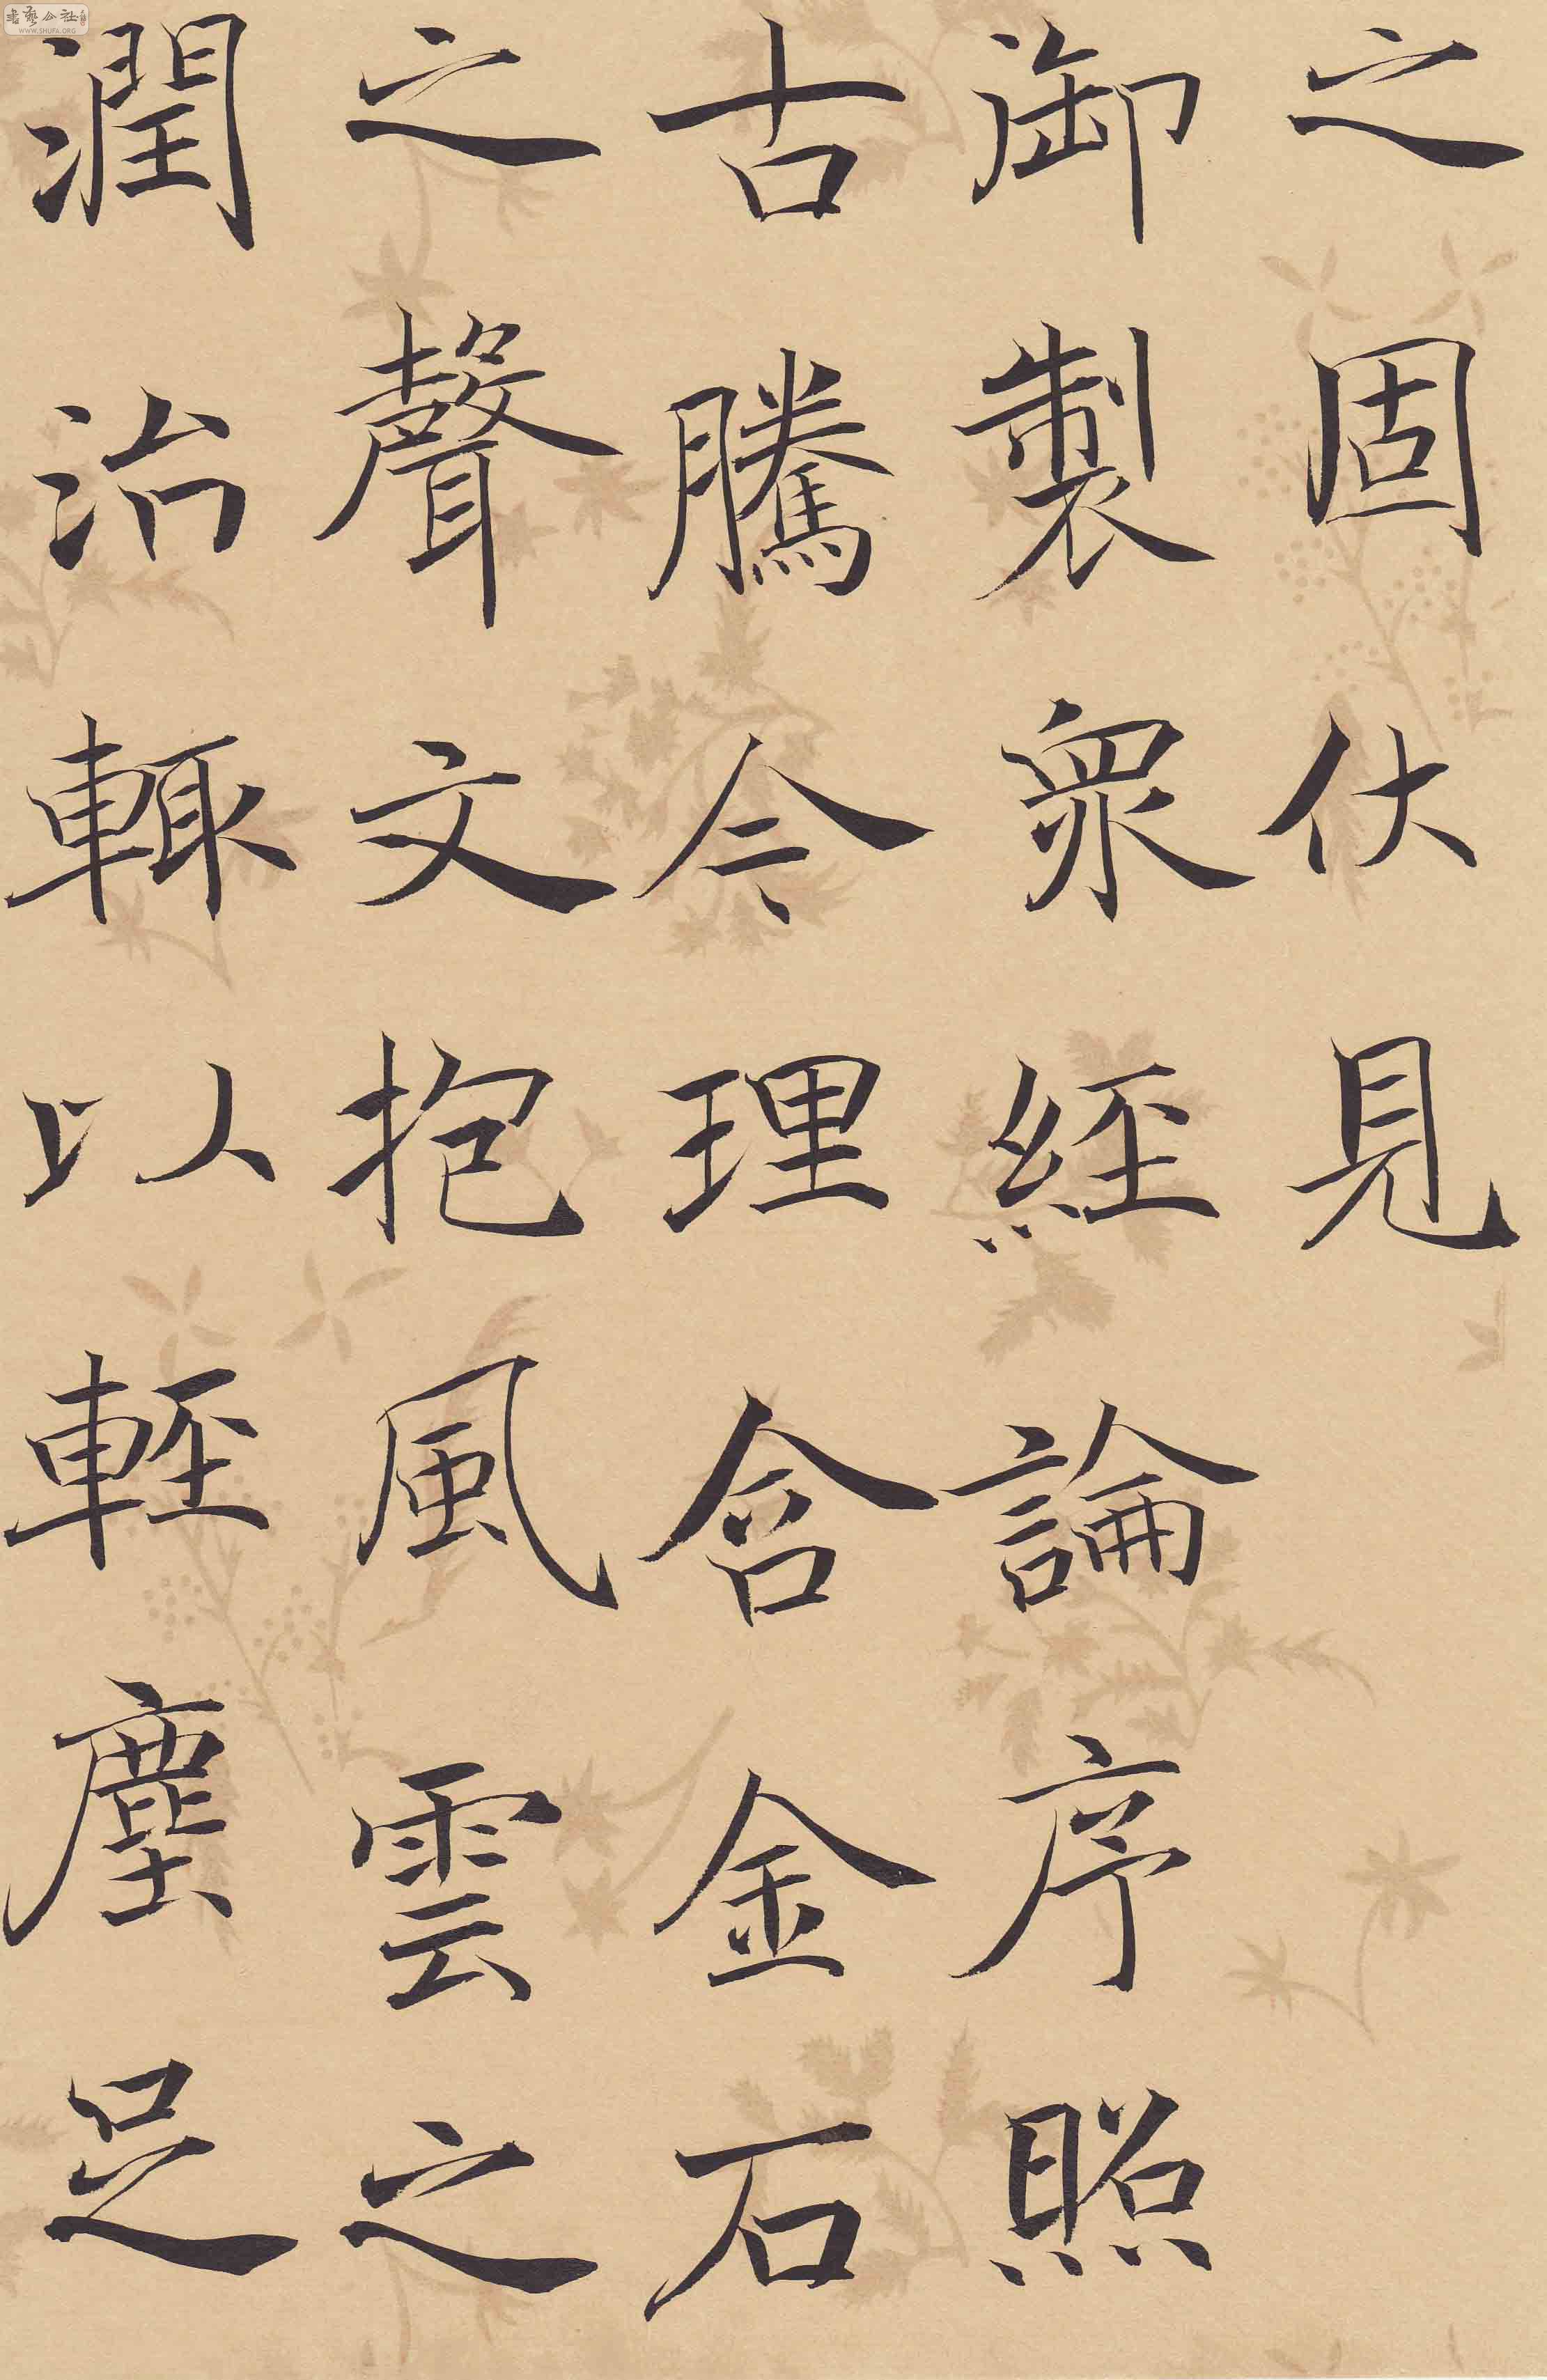 之固伏見
御製眾經論序照
古騰今理含金石
之聲文抱風雲之
潤治輒以輕塵足
書藝公社
WWW.SHUFA.ORG